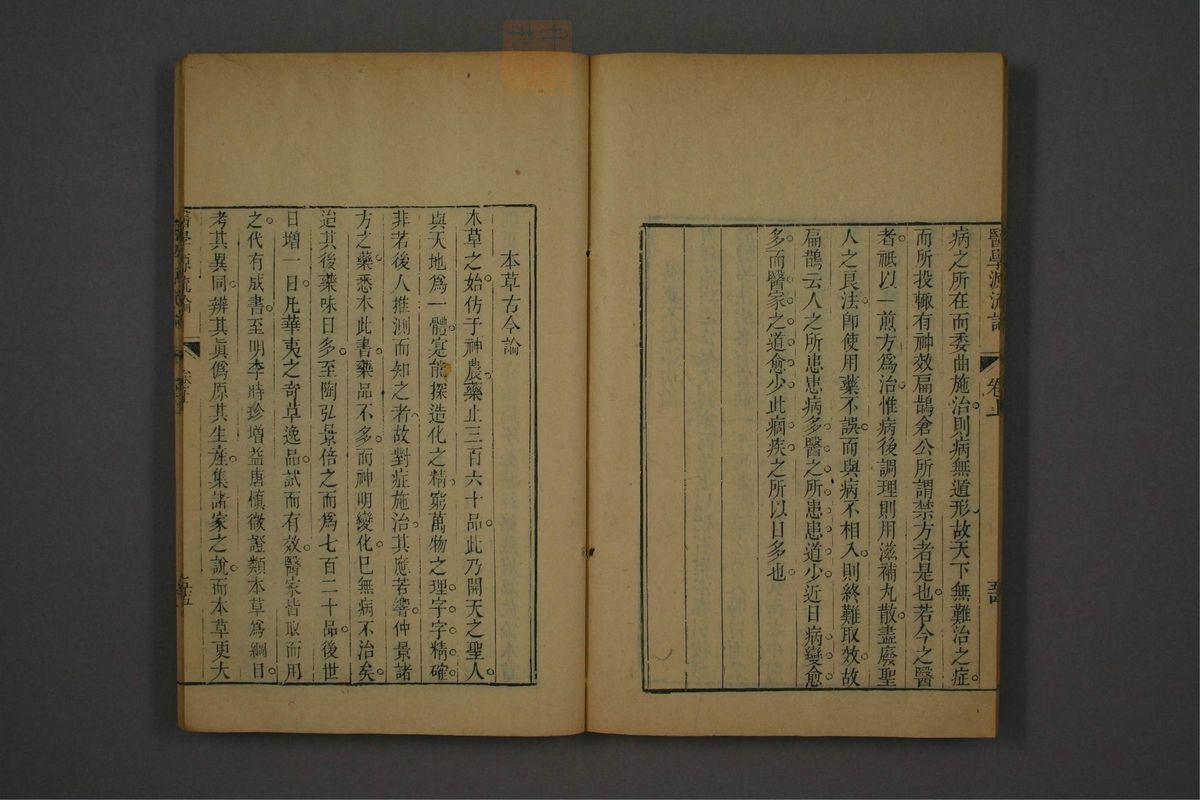 醫學源流論
卷上
病之所在而委曲施治則病無遁形故天下無難治之症
而所投輒有神效扁鵲倉公所謂禁方者是也若今之醫
者祗以一煎方爲治惟病後調理則用滋補丸散盡廢聖
人之良法卽使用藥不誤而與病不相入則終難取效故
扁鵲云人之所患患病多醫之所患患道少近日病變愈
多而醫家之道愈少此痼疾之所以日多也
本草古今論
本草之始仿于神農藥止三百六十品此乃開天之聖人
與天地爲一體寔能探造化之精窮萬物之理字字精確
非若後人推測而知之者故對症施治其應若響仲景諸
方之藥悉本此書藥品不多而神明變化已無病不治矣
迨其後藥味日多至陶弘景倍之而爲七百二十品後世
日增一日凡華夷之奇草逸品試而有效醫家皆取而用
之代有成書至明李時珍增益唐慎微證類本草爲綱目
考其異同辨其眞僞原其生產集諸家之說而本草更大